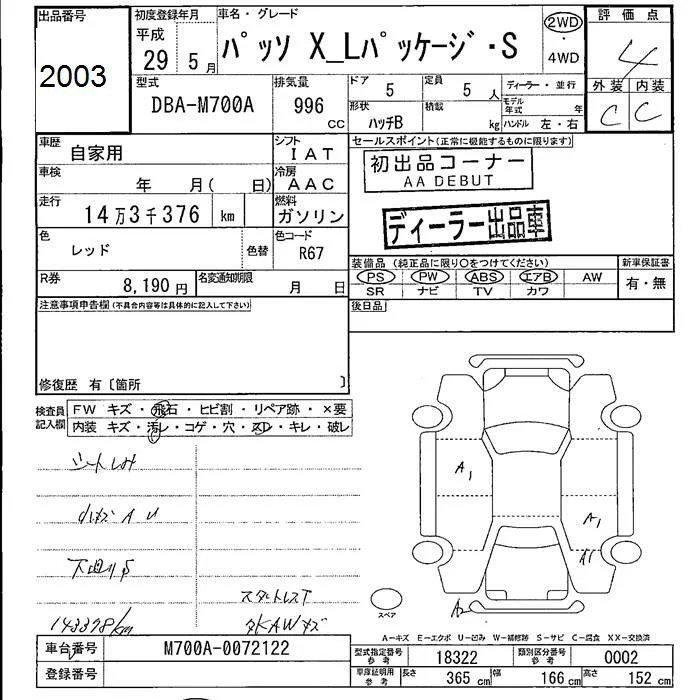 出品番号
2003
初度登録年月
平成
29 5 月
車名・グレード
パッソ X_Lパッケージ・S
2WD
・
4WD
評価点
4
外装 内装
C C
型式
DBA-M700A
排気量
996 CC
ドア
5
定員
5 人
形状
ハッチB
積載
kg
ディーラー・並行
モデル年式 年
ハンドル 左・右
車歴
自家用
シフト
IAT
車検
年 月( 日)
冷房
AAC
走行
14万3千376 km
燃料
ガソリン
色
レッド
色替
色コード
R67
R券
8,190 円
名変通知期限
月 日
セールスポイント(正常に機能するものに限ります)
初出品コーナー
AA DEBUT
ディーラー出品車
装備品 (純正品に限り〇をつけてください)
PS PW ABS エアB AW
SR ナビ TV カワ
新車保証書
有・無
後日品
注意事項申告欄(不具合内容等は具体的に記入して下さい)
修復歴 有〔箇所 〕
検査員記入欄
FW キズ・飛石・ヒビ割・リペア跡・×要
内装 キズ・汚レ・コゲ・穴・スレ・キレ・破レ
シートしみ
小キズ A U
下廻りS
スタートレスT
143398km
A1
A1
A1
A2
スペア
A-キズ E-エクボ U-凹み W-補修跡 S-サビ C-腐食 XX-交換済
車台番号
M700A-0072122
登録番号
型式指定番号 参考
18322
類別区分番号 参考
0002
車庫証明用 参考
長さ 365 cm
幅 166 cm
高さ 152 cm